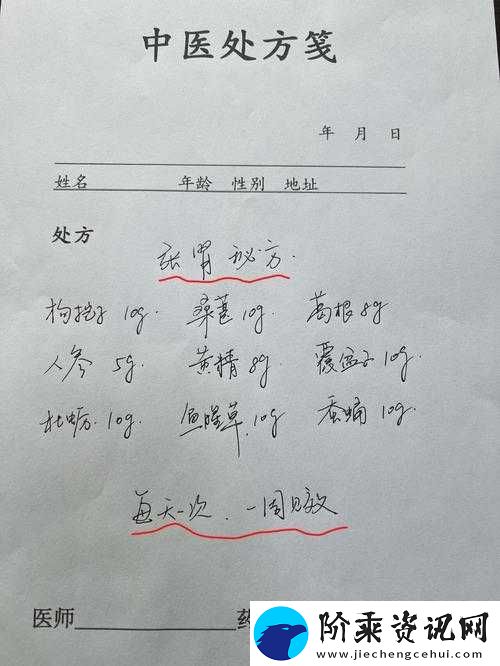 中医处方笺
年 月 日
姓名 年龄 性别 地址
处方
张胃秘方.
枸杞子 10g. 桑葚 10g. 葛根 8g
人参 5g. 黄精 8g 覆盆子 10g.
牡蛎. 10g. 鱼腥草. 10g 蚕蛹 10g.
每天一次. 一周见效
医师
阶乘资讯网
www.jiechengcehui.com